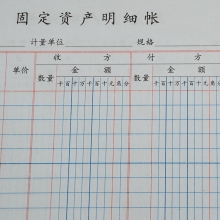 固定资产明细帐
计量单位 规格
收方 付方
单价 数量 金额 数量 金额
千百十千百十元角分 千百十千百十元角分